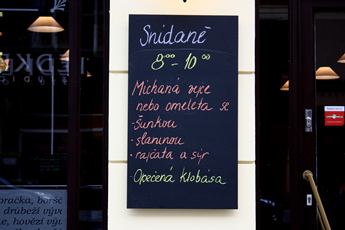 Snidaně
8⁰⁰ - 10⁰⁰
Michaná vejce
nebo omeleta se
- šunkou
- slaninou
- rajčata a sýr
- Opečená klobása
pračka, boršč
drůbeží výv
hovězí výv